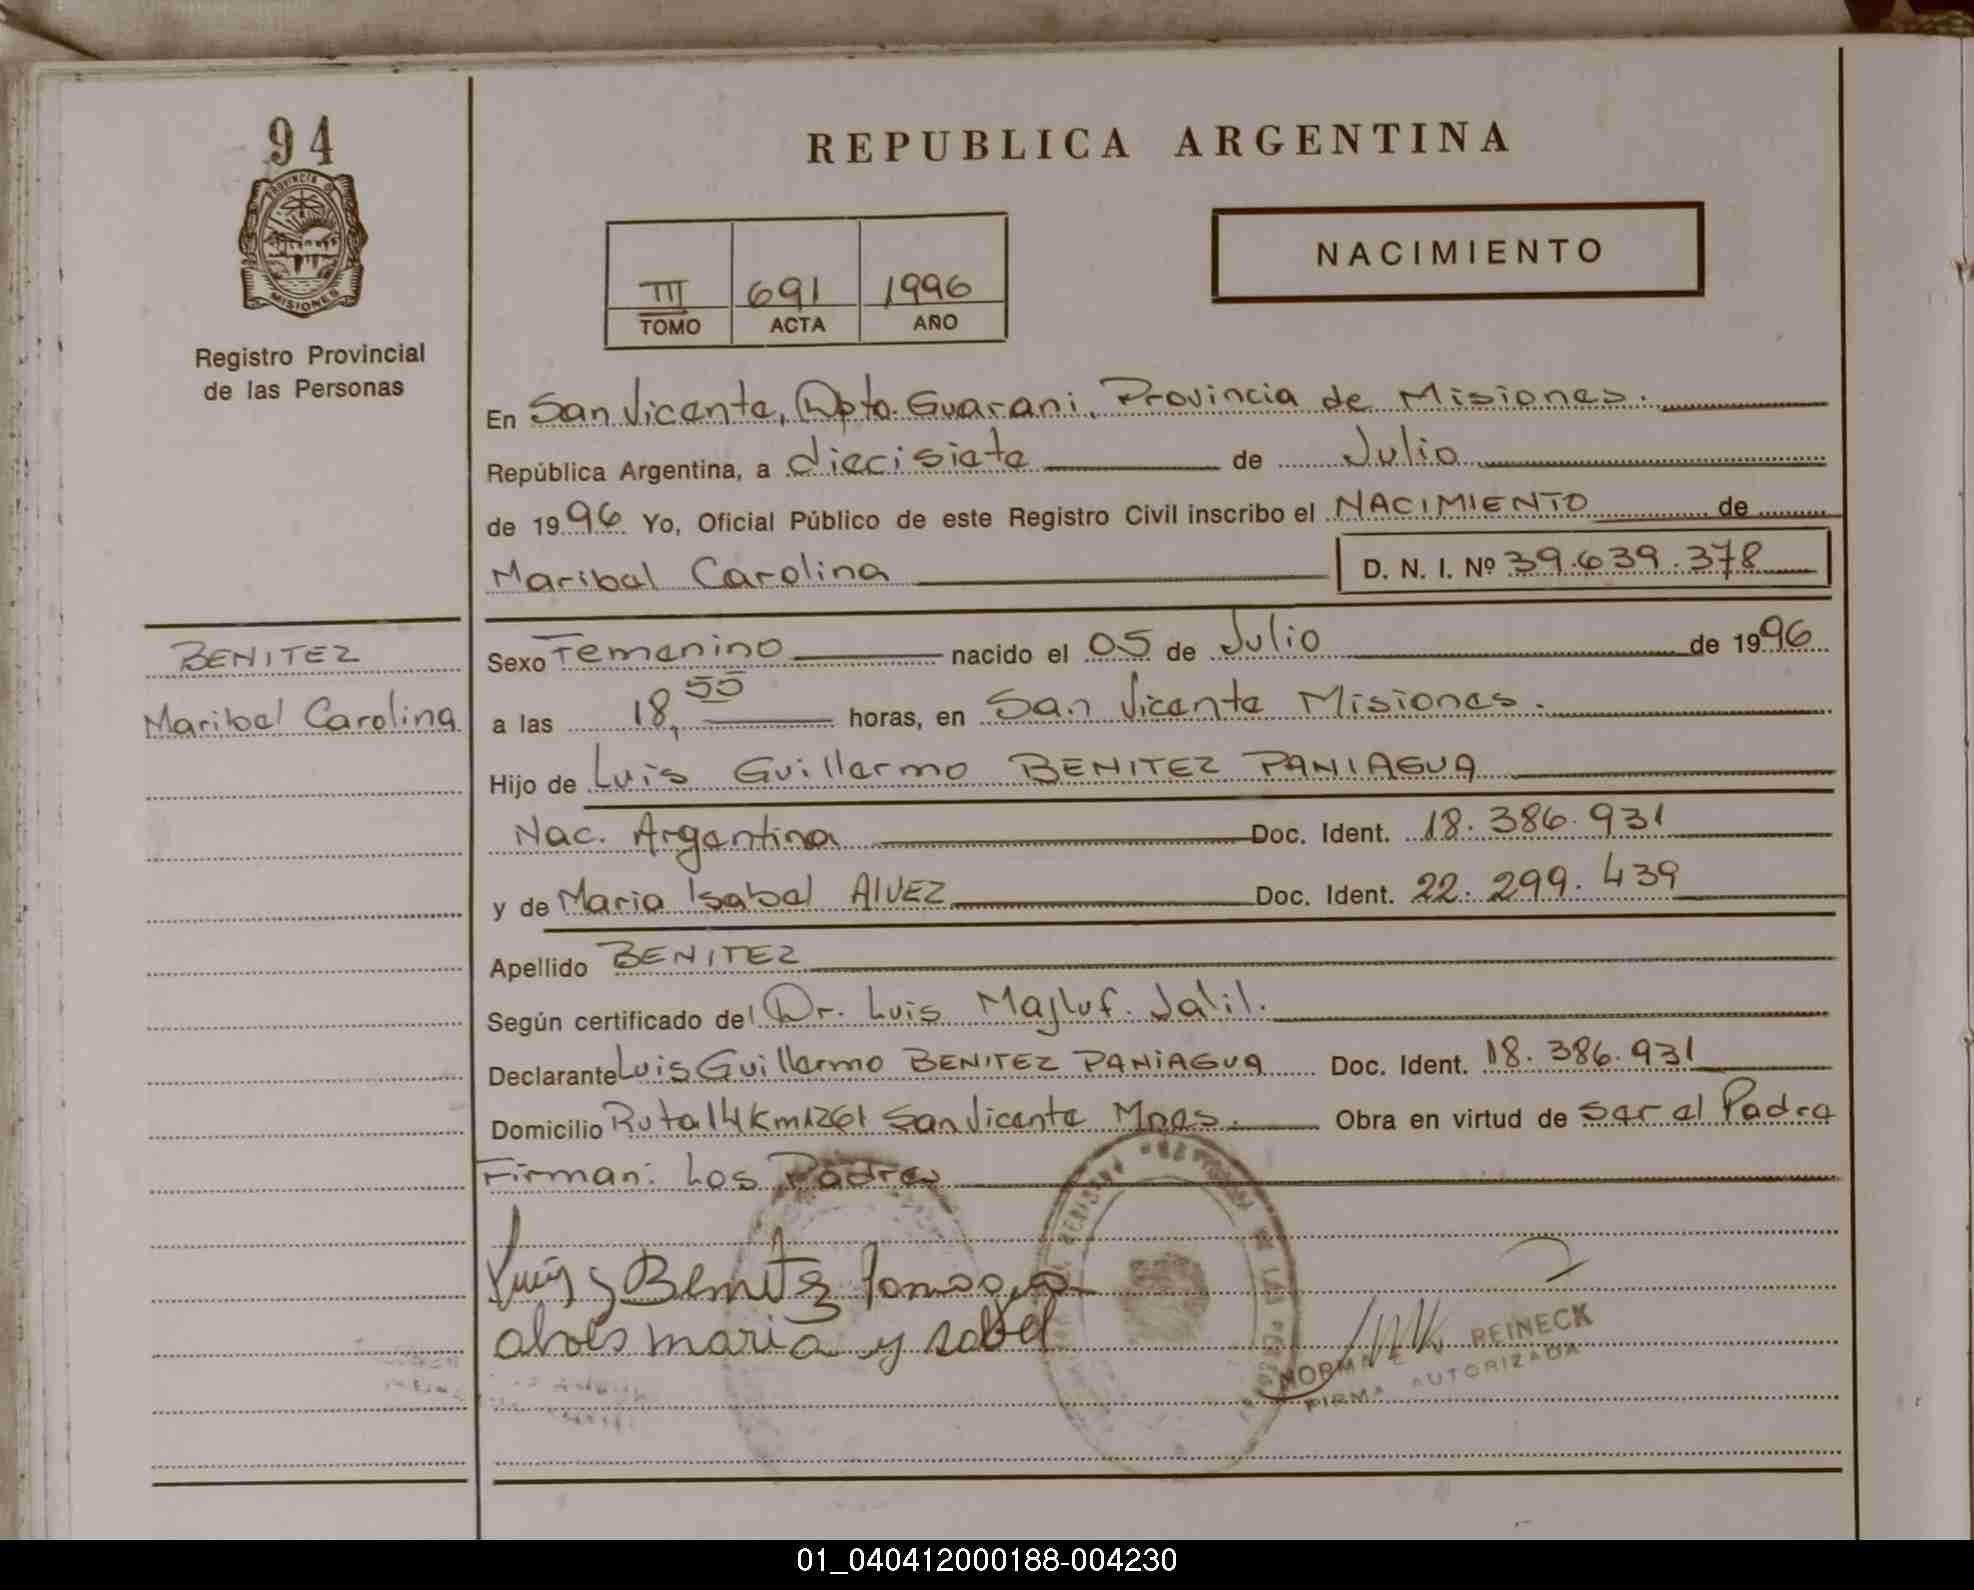 94
PROVINCIA DE
MISIONES
Registro Provincial
de las Personas
BENITEZ
Maribel Carolina
REPUBLICA ARGENTINA
NACIMIENTO
III 691 1996
TOMO ACTA AÑO
En San Vicente, Dpto. Guarani, Provincia de Misiones.
República Argentina, a diecisiete de Julio
de 1996 Yo, Oficial Público de este Registro Civil inscribo el NACIMIENTO de
Maribel Carolina D. N. I. Nº 39.639.378
Sexo Femenino nacido el 05 de Julio de 1996
a las 18,55 horas, en San Vicente Misiones.
Hijo de Luis Guillermo BENITEZ PANIAGUA
Nac. Argentina Doc. Ident. 18.386.931
y de Maria Isabel AlVEZ Doc. Ident. 22.299.439
Apellido BENITEZ
Según certificado del Dr. Luis Majluf. Jalil.
Declarante Luis Guillermo BENITEZ PANIAGUA Doc. Ident. 18.386.931
Domicilio Ruta 14 Km 1261 San Vicente Mnes. Obra en virtud de ser el Padre
Firman: Los Padres
Luis G Benitez
alves maria ysabel
NORMA REINECK
FIRMA AUTORIZADA
01_040412000188-004230